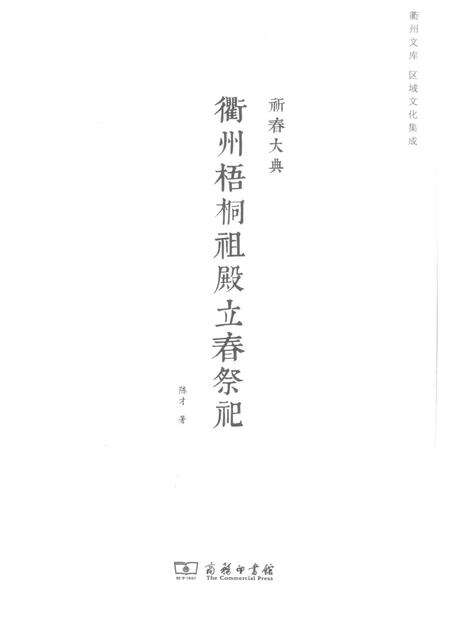 衢州文库 区域文化集成
祈春大典
衢州梧桐祖殿立春祭祀
陈才 著
创于1897
商務印書館
The Commercial Press